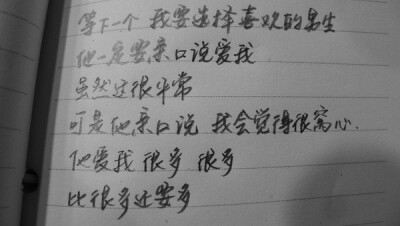 等下一个 我要选择喜欢的男生
他一定要亲口说爱我
虽然这很平常
可是他亲口说 我会觉得很窝心.
他爱我 很多 很多
比很多还要多